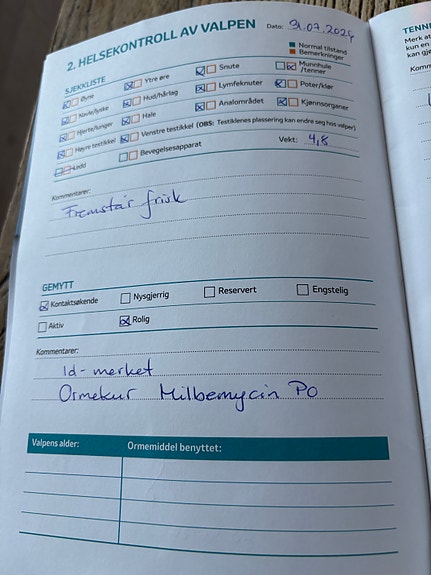 2. HELSEKONTROLL AV VALPEN Dato: 9.07.2024
Normal tilstand
Bemerkninger
SJEKKLISTE
Øyne Ytre øre Snute Munnhule /tenner
Navle/lyske Hud/hårlag Lymfeknuter Poter/klør
Hjerte/lunger Hale Analområdet Kjønnsorganer
Høyre testikkel Venstre testikkel (OBS: Testiklenes plassering kan endre seg hos valper)
Ledd Bevegelsesapparat Vekt: 4,8
Kommentarer:
Fremstår frisk
GEMYTT
Kontaktsøkende Nysgjerrig Reservert Engstelig
Aktiv Rolig
Kommentarer:
Id-merket
Ormekur Milbemycin PO
Valpens alder: Ormemiddel benyttet:
TENNE
Merk at
kun en
kan gjø
Komm